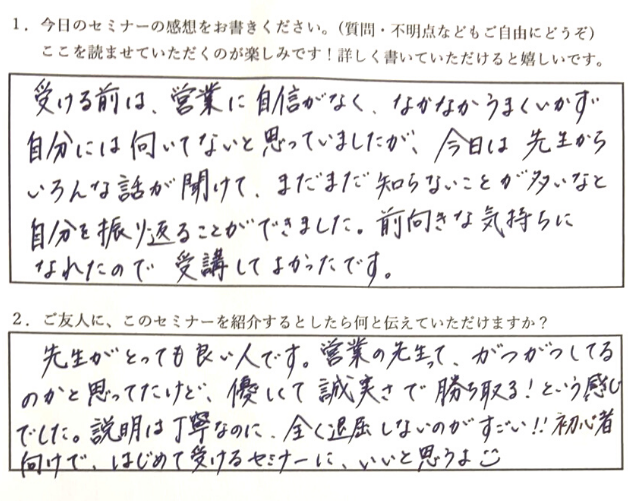 1．今日のセミナーの感想をお書きください。（質問・不明点などもご自由にどうぞ）
ここを読ませていただくのが楽しみです！詳しく書いていただけると嬉しいです。
受ける前は、営業に自信がなく、なかなかうまくいかず
自分には向いてないと思っていましたが、今日は先生から
いろんな話が聞けて、まだまだ知らないことが多いなと
自分を振り返ることができました。前向きな気持ちに
なれたので受講してよかったです。
2．ご友人に、このセミナーを紹介するとしたら何と伝えていただけますか？
先生がとっても良い人です。営業の先生って、がつがつしてる
のかと思ってたけど、優しくて誠実さで勝ち取る！という感じ
でした。説明は丁寧なのに、全く退屈しないのがすごい!!初心者
向けで、はじめて受けるセミナーに、いいと思うよ